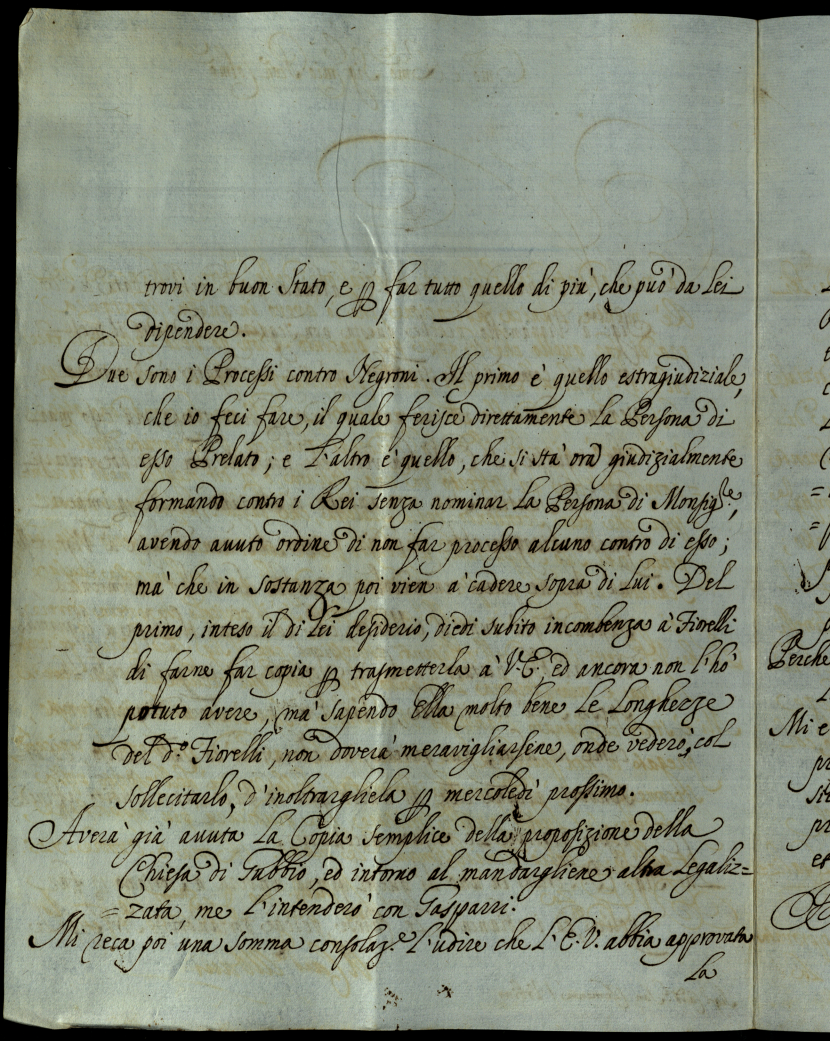 trovi in buon Stato, e ꝑ far tutto quello di più, che può da Lei
dipendere.
Due sono i Processi contro Negroni. Il primo è quello estragiudiziale,
che io feci fare, il quale ferisce direttamente la Persona di
esso Prelato; e l'altro è quello, che si stà ora giudizialmente
formando contro i Rei senza nominar la Persona di Monsig.re,
avendo avuto ordine di non far processo alcuno contro di esso;
mà che in sostanza poi vien à cadere sopra di Lui. Del
primo, inteso il di Lei desiderio, diedi subito incombenza à Fiorelli
di farne far copia ꝑ trasmetterla à V.E., ed ancora non l'hò
potuto avere, mà sapendo Ella molto bene le Longhezze
del d.o Fiorelli, non doverà meravigliarsene, onde vederò, col
sollecitarlo, d'inoltrargliela ꝑ mercoledì prossimo.
Averà già avuta la Copia semplice della proposizione della
Chiesa di Gubbio, ed intorno al mandargliene altra Legaliz=
=zata, me l'intenderò con Gasparri.
Mi reca poi una somma consolaz.e l'udire che L'E.V. abbia approvata
la
Perche
Mi e